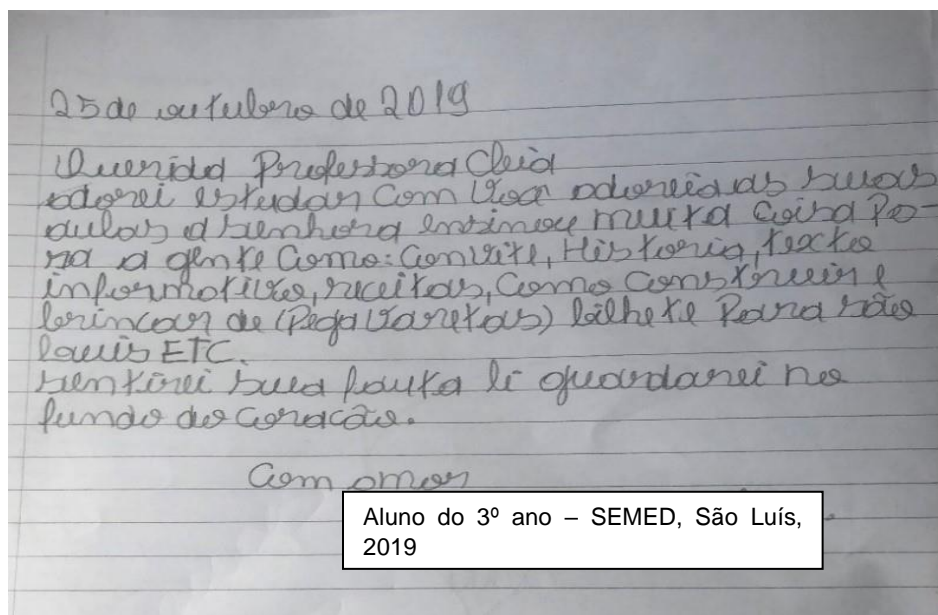 25 de outubro de 2019
Querida Professora Cleia
adorei estudar com você adoreia as suas
aulas a senhora ensinou muita coisa Pa-
ra a gente Como: Convite, Historia, texto
informativo, receitas, Como Construir e
brincar de (Pega Varetas) bilhete Para são
Louis ETC.
sentirei sua fauta li guardarei no
fundo do coração.
Com amor
Aluno do 3º ano – SEMED, São Luís,
2019